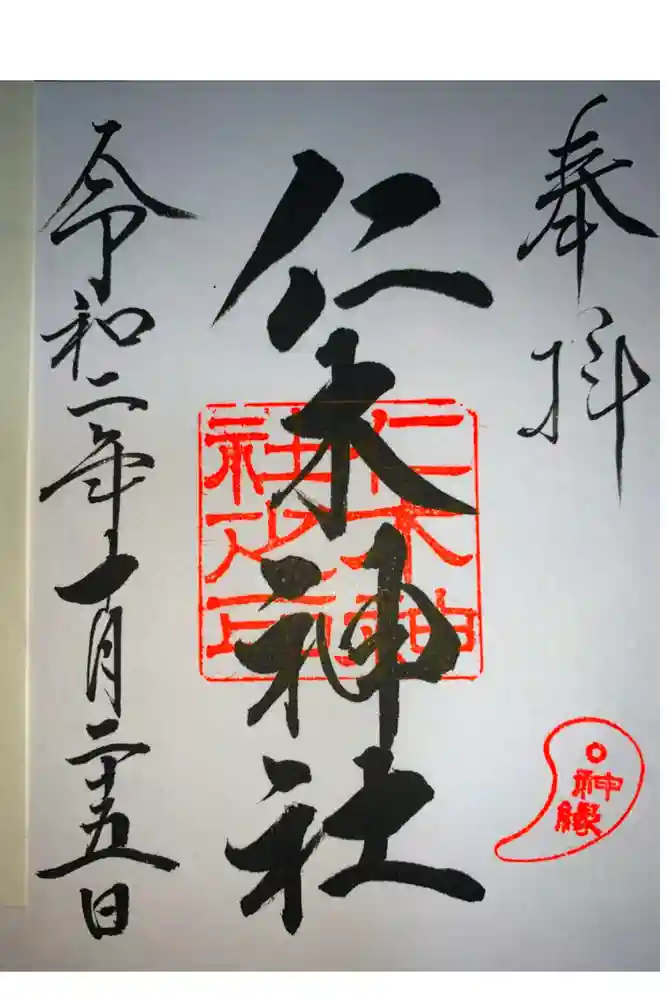 奉拝
仁木神社
仁木神
社之印
神縁
令和二年十月二十五日